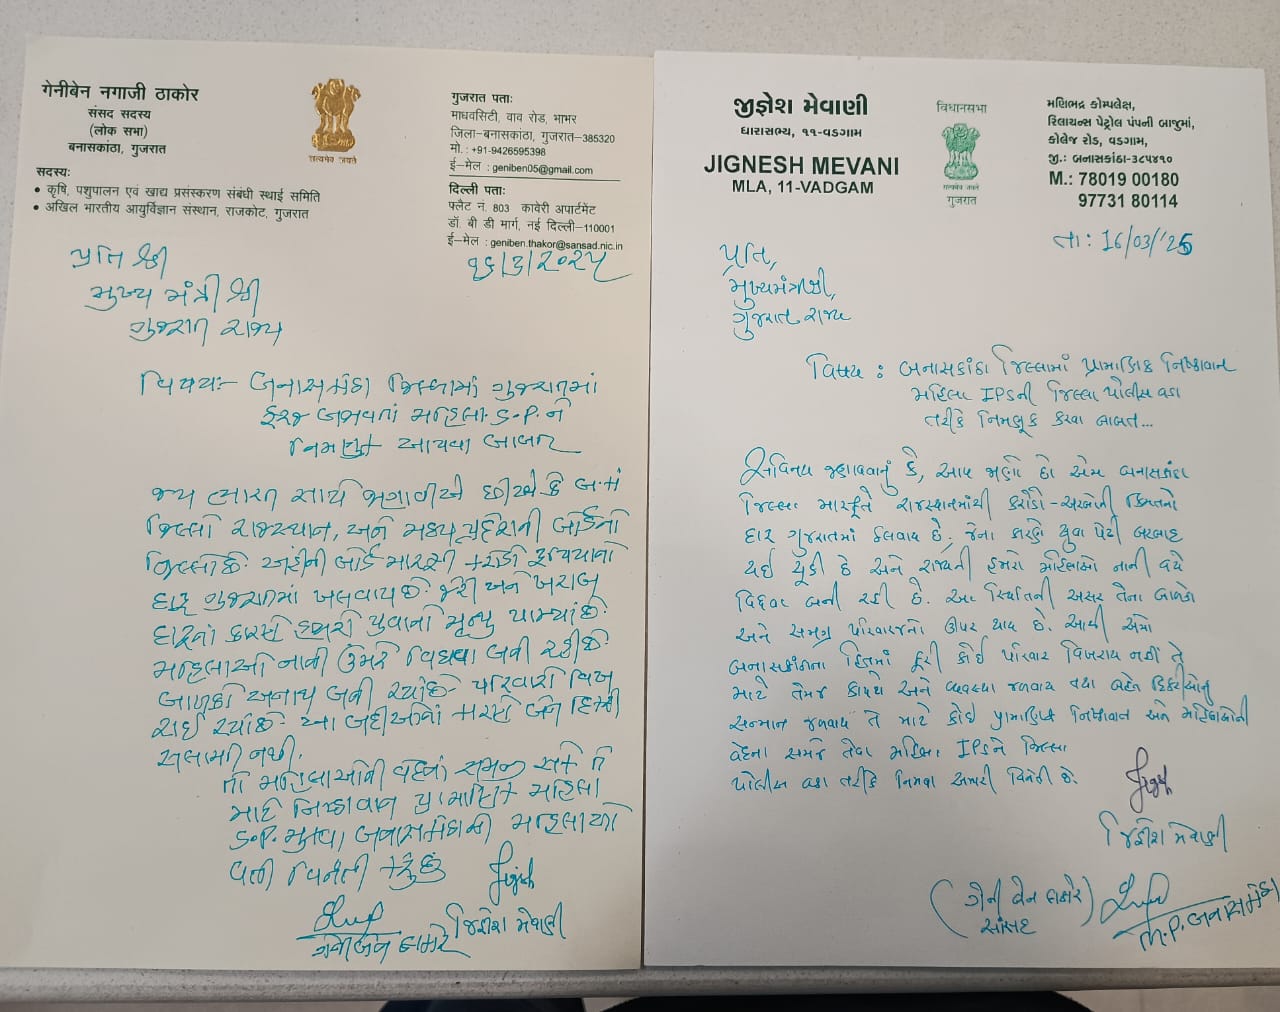 गेनीबेन नगाजी ठाकोर
संसद सदस्य
(लोक सभा)
बनासकांठा, गुजरात
सदस्य:
• कृषि, पशुपालन एवं खाद्य प्रसंस्करण संबंधी स्थाई समिति
• अखिल भारतीय आयुर्विज्ञान संस्थान, राजकोट, गुजरात
सत्यमेव जयते
गुजरात पता:
माधवसिटी, वाव रोड, भाभर
जिला-बनासकांठा, गुजरात–385320
मो. : +91-9426595398
ई–मेल : geniben05@gmail.com
दिल्ली पता:
फ्लैट नं. 803 कावेरी अपार्टमेंट
डॉ. बी डी मार्ग, नई दिल्ली–110001
ई–मेल : geniben.thakor@sansad.nic.in
૧૬/૩/૨૦૨૫
પ્રતિ શ્રી
મુખ્ય મંત્રી શ્રી
ગુજરાત રાજ્ય
વિષય:- બનાસકાંઠા જિલ્લામાં ગુજરાતમાં
ફરજ બજાવતાં મહિલા S.P. ને
નિમણુક આપવા બાબત
જય ભારત સાથ જણાવીએ છીએ કે બ.કાં
જિલ્લો રાજસ્થાન, અને મધ્યપ્રદેશની બોર્ડરનો
જિલ્લો છે. અહીંની બોર્ડ મારફતે કરોડો રૂપિયાનો
દારૂ ગુજરાતમાં ઠલવાય છે. ઝેરી અને ખરાબ
દારૂનાં કારણે હજારો યુવાનો મૃત્યુ પામ્યાં છે.
મહિલાઓ નાની ઉંમરે વિધવા બની રહી છે.
બાળકો અનાથ બની રહ્યાં છે. પરિવારો વિખુ
રાઈ રહ્યાં છે. આ બદીઓનાં કારણે બેન દિકરી
સલામત નથી.
તો મહિલાઓની વેદના સમજી શકે તે
માટે નિષ્ઠાવાન પ્રામાણિક મહિલા
S.P. મુકવા બનાસકાંઠાની મહિલાઓ
વતી વિનંતી કરું છું
ગેનીબેન ઠાકોર
જિજ્ઞેશ મેવાણી
જીજ્ઞેશ મેવાણી
ધારાસભ્ય, ૧૧-વડગામ
JIGNESH MEVANI
MLA, 11-VADGAM
વિધાનસભા
सत्यमेव जयते
ગુજરાત
મણિભદ્ર કોમ્પલેક્ષ,
રિલાયન્સ પેટ્રોલ પંપની બાજુમાં,
કોલેજ રોડ, વડગામ,
જી.: બનાસકાંઠા-૩૮૫૪૧૦
M.: 78019 00180
97731 80114
તા : 16/03/'25
પ્રતિ,
મુખ્યમંત્રીશ્રી,
ગુજરાત રાજ્ય
વિષય : બનાસકાંઠા જિલ્લામાં પ્રામાણિક નિષ્ઠાવાન
મહિલા IPSની જિલ્લા પોલીસ વડા
તરીકે નિમણૂક કરવા બાબત...
સવિનય જણાવવાનું કે, આપ જાણો છો એમ બનાસકાંઠા
જિલ્લા મારફતે રાજસ્થાનમાંથી કરોડો-અબજોની કિંમતનો
દારૂ ગુજરાતમાં ઠલવાય છે. જેના કારણે યુવા પેઢી બરબાદ
થઈ ચૂકી છે અને રાજ્યની હજારો મહિલાઓ નાની વયે
વિધવા બની રહી છે. આ સ્થિતિની અસર તેના બાળકો
અને સમગ્ર પરિવારજનો ઉપર થાય છે. આથી અમો
બનાસકાંઠાના હિતમાં ફરી કોઈ પરિવાર વિખરાય નહીં તે
માટે તેમજ કાયદો અને વ્યવસ્થા જળવાય તથા બહેન દિકરીઓનું
સન્માન જળવાય તે માટે કોઈ પ્રામાણિક નિષ્ઠાવાન અને મહિલાઓની
વેદના સમજે તેવા મહિલા IPSને જિલ્લા
પોલીસ વડા તરીકે નિમવા અમારી વિનંતી છે.
જિજ્ઞેશ મેવાણી
(ગેની બેન ઠાકોર)
સાંસદ
M.P. બનાસકાંઠા